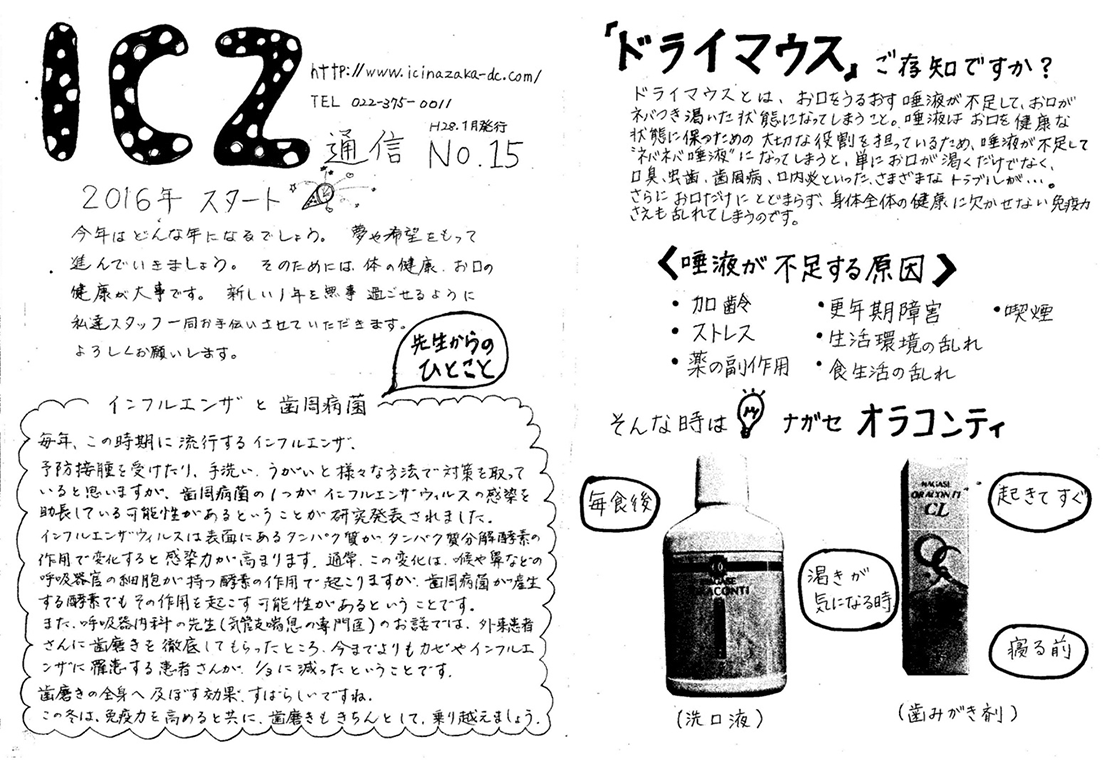 ICZ
http://www.icinazaka-dc.com/
TEL 022-375-0011
H28.1月発行
通信 No.15
2016年 スタート
今年はどんな年になるでしょう。 夢や希望をもって
進んでいきましょう。 そのためには、体の健康、お口の
健康が大事です。 新しい1年を無事過ごせるように
私達スタッフ一同お手伝いさせていただきます。
よろしくお願いします。
先生からの
ひとこと
インフルエンザと歯周病菌
毎年、この時期に流行するインフルエンザ、
予防接種を受けたり、手洗い、うがいと様々な方法で対策を取って
いると思いますが、歯周病菌の1つがインフルエンザウィルスの感染を
助長している可能性があるということが研究発表されました。
インフルエンザウィルスは表面にあるタンパク質がタンパク質分解酵素の
作用で変化すると感染力が高まります。通常、この変化は、喉や鼻などの
呼吸器官の細胞が持つ酵素の作用で起こりますが、歯周病菌が産生
する酵素でもその作用を起こす可能性があるということです。
また、呼吸器内科の先生(気管支喘息の専門医)のお話では、外来患者
さんに歯磨きを徹底してもらったところ、今までよりもカゼやインフルエ
ンザに罹患する患者さんが、1/3に減ったということです。
歯磨きの全身へ及ぼす効果、すばらしいですね。
この冬は、免疫力を高めると共に、歯磨きもきちんとして、乗り越えましょう。
『ドライマウス』ご存知ですか?
ドライマウスとは、お口をうるおす唾液が不足して、お口が
ネバつき渇いた状態になってしまうこと。唾液はお口を健康な
状態に保つための大切な役割を担っているため、唾液が不足して
"ネバネバ唾液"になってしまうと、単にお口が渇くだけでなく、
口臭、虫歯、歯周病、口内炎といった、さまざまなトラブルが…。
さらにお口だけにとどまらず、身体全体の健康に欠かせない免疫力
さえも乱れてしまうのです。
〈唾液が不足する原因〉
・加齢 ・更年期障害 ・喫煙
・ストレス ・生活環境の乱れ
・薬の副作用 ・食生活の乱れ
そんな時は ナガセ オラコンティ
毎食後
NAGASE
ORACONTI
渇きが
気になる時
NAGASE
ORACONTI
CL
起きてすぐ
寝る前
(洗口液)
(歯みがき剤)